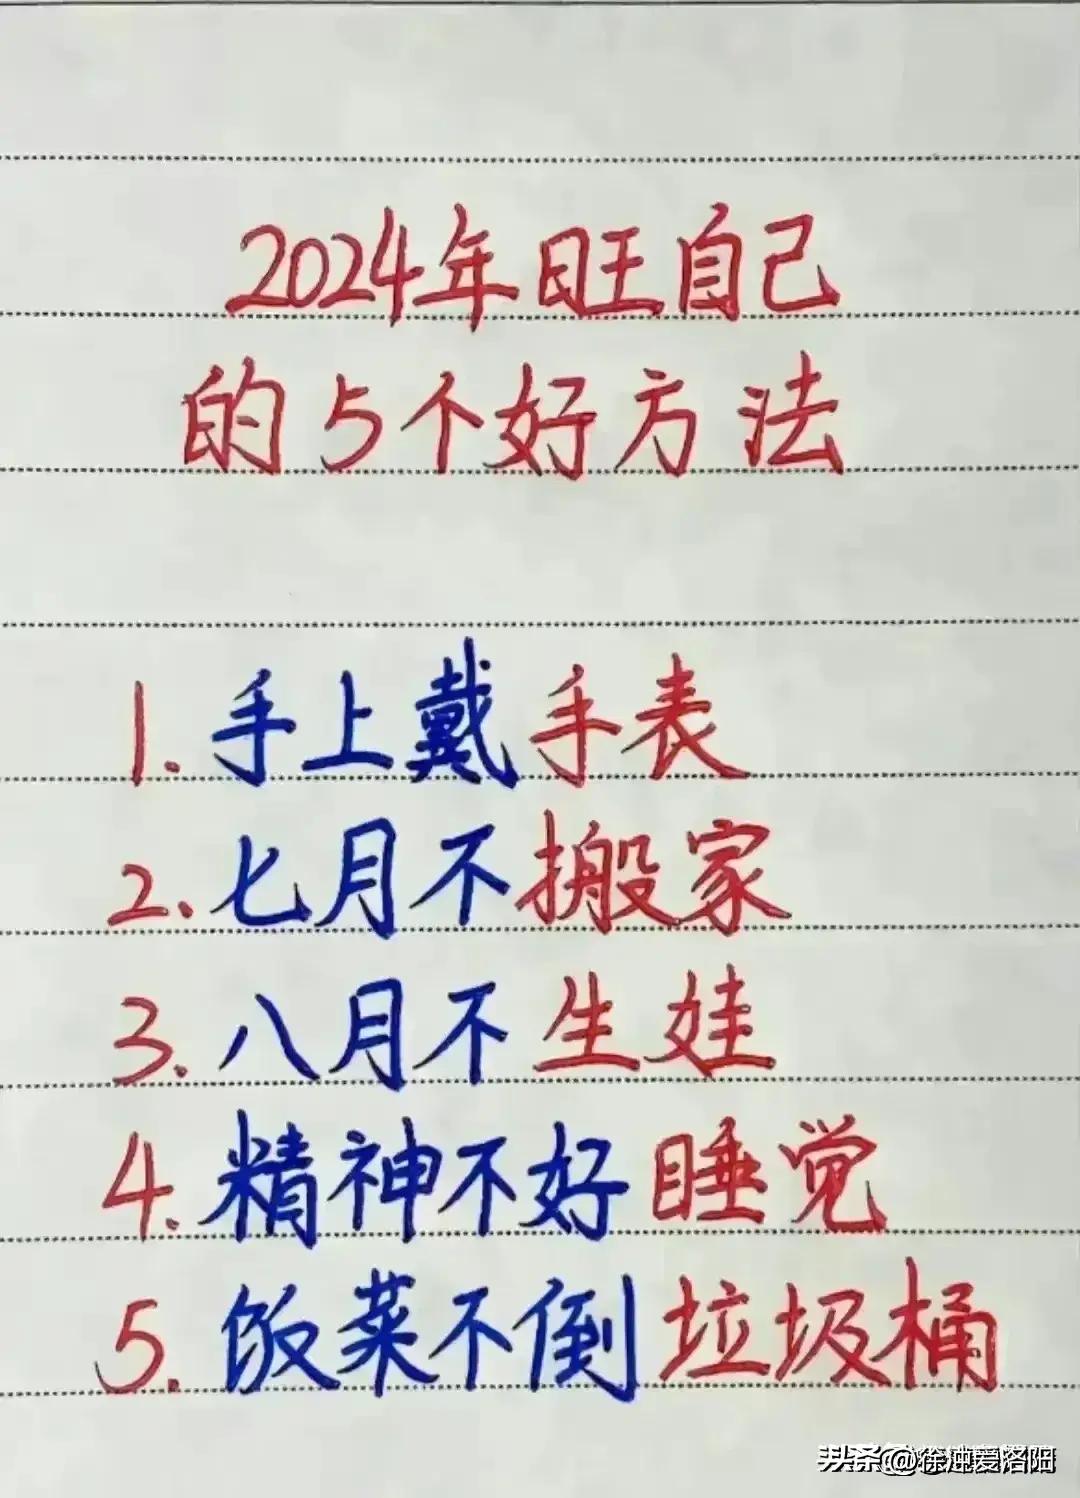 2024年旺自己
的5个好方法
1.手上戴手表
2.七月不搬家
3.八月不生娃
4.精神不好睡觉
5.饭菜不倒垃圾桶
头条@徐沌爱洛阳